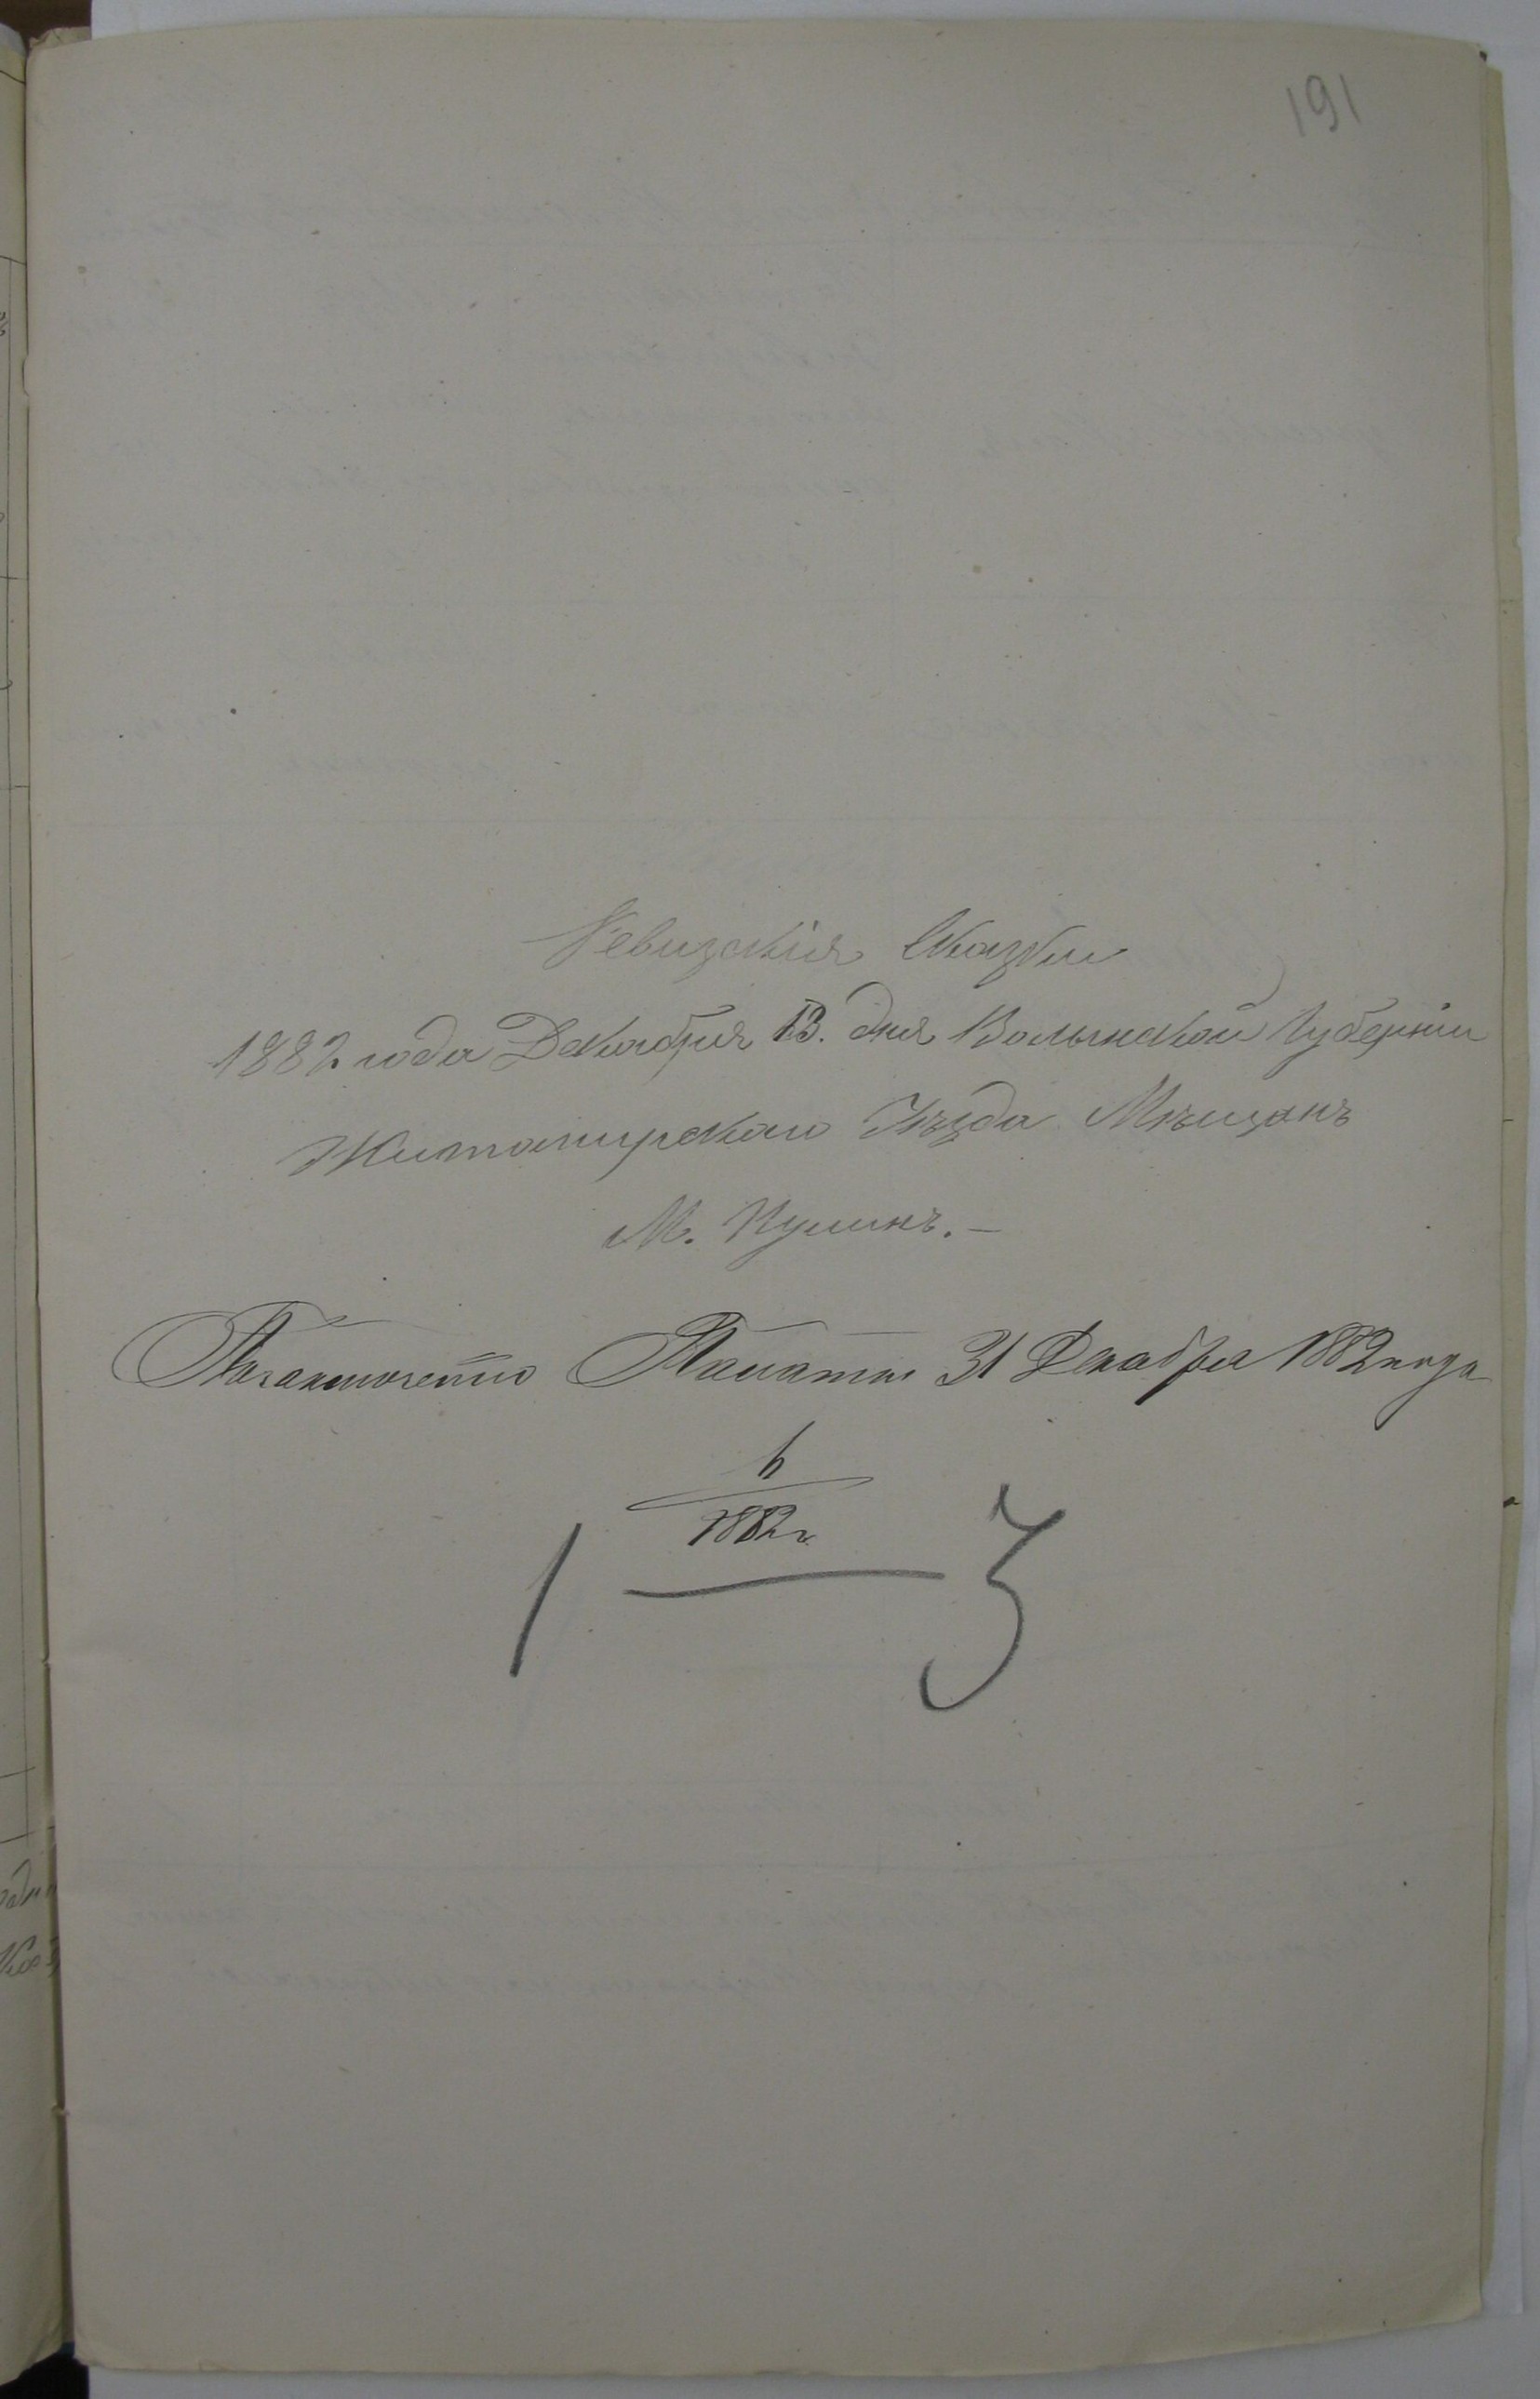 191
Ревизскія Сказки
1882 года Декабря 13. дня Волынской Губерніи
Житомирскаго Уѣзда Мѣщанъ
М. Кулинъ. —
По заключенію Палаты 31 Декабря 1882 года
1882 г.
1 — 3